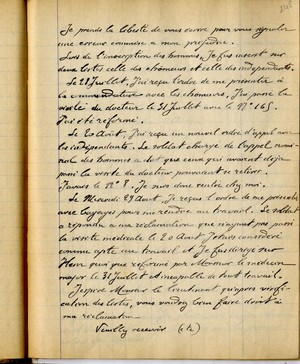 Je prends la liberté de vous écrire pour vous signaler
une erreur commise à mon préjudice.
Lors de l'inscription des hommes, je fus inscrit sur
deux listes celle des chômeurs et celle des indépendants.
Le 28 Juillet, j'ai reçu l'ordre de me présenter à
la commandature avec les chômeurs, j'ai passé la
visite du docteur le 31 Juillet avec le N° 165.
J'ai été réformé.
Le 20 Août, j'ai reçu un nouvel ordre d'appel avec
les indépendants. Le soldat chargé de l'appel
des hommes a dit que ceux qui avaient déjà
passé la visite du docteur pouvaient se retirer.
J'avais le N° 8. Je suis donc rentré chez moi.
Le Mercredi 29 Août, je reçus l'ordre de me présenter
avec bagages pour me rendre au travail. Le soldat
a répondu à ma réclamation que n'ayant pas passé
la visite médicale le 20 Août j'étais considéré
comme apte au travail et je fus dirigé sur
Ham quoique réformé par Monsieur le médecin
major le 31 Juillet et incapable de tout travail.
J'espère Monsieur le Lieutenant qu'après vérifi-
cation des listes, vous voudrez bien faire droit à
ma réclamation.
Veuillez recevoir